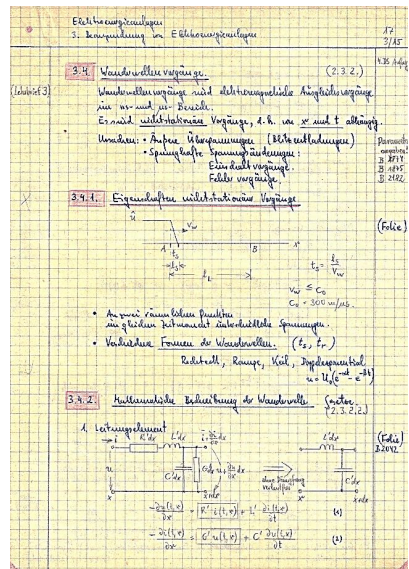 Elektroenergieanlagen
3. Beanspruchung von Elektroenergieanlagen
17
3/15
3.4. Wanderwellenvorgänge.
(2.3.2.)
(Lehrbrief 3)
Wanderwellenvorgänge sind elektromagnetische Ausgleichsvorgänge
im ns- und µs- Bereich.
Es sind nichtstationäre Vorgänge, d.h. von x und t abhängig.
Ursachen: • Äußere Überspannungen (Blitzentladungen)
• Sprunghafte Spannungsänderungen:
Einschaltvorgänge.
Fehlervorgänge.
Parameter
B 1845
B 2182
3.4.1. Eigenschaften nichtstationärer Vorgänge
(Folie)
û
v_w
A
B
x
t_s
l_s
l_L
t_s = l_s / v_w
v_w ≤ c_0
c_0 = 300 m/µs.
• An zwei räumlichen Punkten
im gleichen Zeitmoment unterschiedliche Spannungen.
• Verschiedene Formen der Wanderwellen. (t_s, t_r)
Rechteck, Rampe, Keil, Doppelexponential
u = U_0(e^-αt - e^-βt)
3.4.2. Mathematische Beschreibung der Wanderwelle
(2.3.2.2.)
1. Leitungselement
(Folie)
B 2042
i
R'dx
L'dx
i + ∂i/∂x dx
u
C'dx
G'dx
u + ∂u/∂x dx
x
x+dx
⇒
verlustfrei
L'dx
C'dx
x
x+dx
-∂u(t,x)/∂x = R' · i(t,x) + L' ∂i(t,x)/∂t (1)
-∂i(t,x)/∂x = G' u(t,x) + C' ∂u(t,x)/∂t (2)